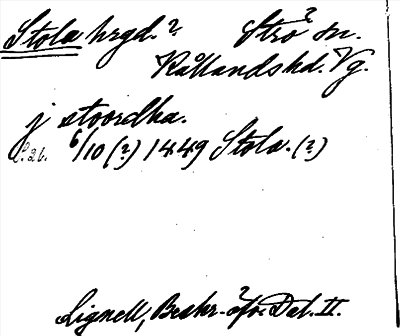 Stola hrgd.? Strö? sn.
Kållands hd. Vg.
j stoordha.
S. 26. 6/10 (?) 1449 Stola. (?)
Lignell, Beskr. öfv. Dal. II.